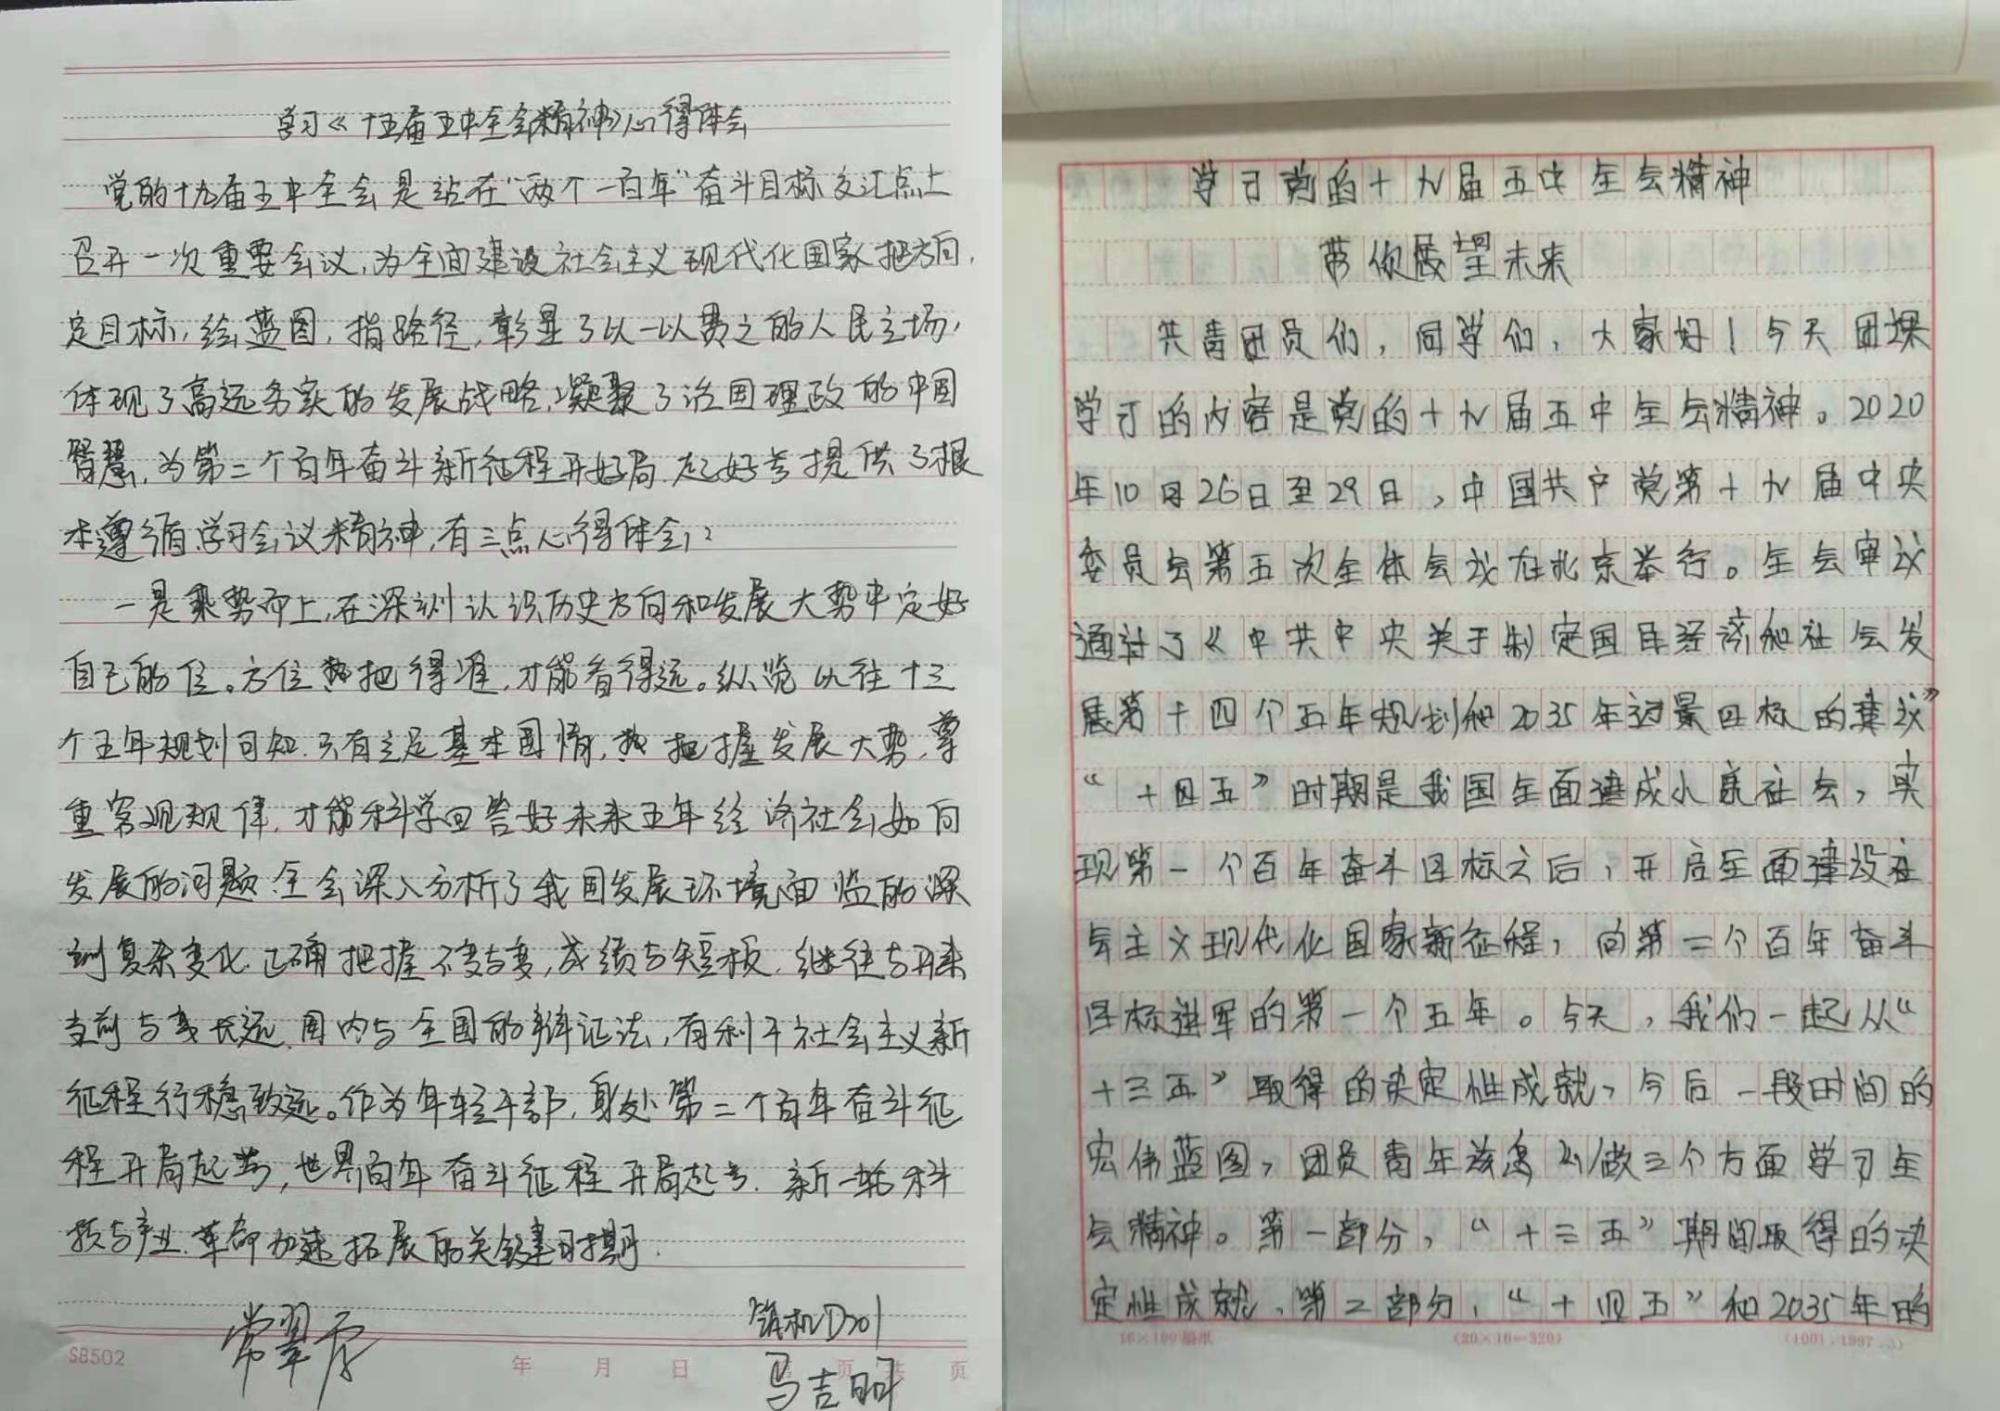 学习《十五届五中全会精神》心得体会
党的十九届五中全会是站在“两个一百年”奋斗目标交汇点上
召开一次重要会议,为全面建设社会主义现代化国家把方向,
定目标,绘蓝图,指路径,彰显了以一以贯之的人民立场,
体现了高远务实的发展战略,凝聚了治国理政的中国
智慧,为第二个百年奋斗新征程开好局.起好步提供了根
本遵循.学习会议精神,有三点心得体会:
一是乘势而上,在深刻认识历史方向和发展大势中定好
自己的位。方位把得准,才能看得远。纵览以往十三
个五年规划可知.只有立足基本国情,把握发展大势,尊
重客观规律,才能科学回答好未来五年经济社会如何
发展的问题.全会深入分析了我国发展环境面临的深
刻复杂变化.正确把握不变与变,成绩与短板,继往与开来
当前与长远.国内与全国的辩证法,有利于社会主义新
征程行稳致远。作为年轻干部,身处第二个百年奋斗征
程开局起步,世界百年奋斗征程开局起步.新一轮科
技与产业.革命加速拓展的关键时期.
常翠
D201
马吉明
SB502 年 月 日 页 共 页
学习党的十九届五中全会精神
带你展望未来
共青团员们,同学们,大家好!今天团课
学习的内容是党的十九届五中全会精神。2020
年10月26日至29日,中国共产党第十九届中央
委员会第五次全体会议在北京举行。全会审议
通过了《中共中央关于制定国民经济和社会发
展第十四个五年规划和2035年远景目标的建议》
“十四五”时期是我国全面建成小康社会,实
现第一个百年奋斗目标之后,开启全面建设社
会主义现代化国家新征程,向第二个百年奋斗
目标进军的第一个五年。今天,我们一起从“
十三五”取得的决定性成就,今后一段时间的
宏伟蓝图,团员青年该怎么做三个方面学习全
会精神。第一部分,“十三五”期间取得的决
定性成就,第二部分,“十四五”和2035年的
(20×16=320)